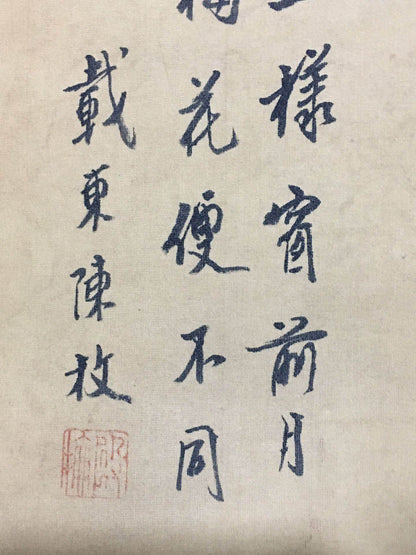 樣窗前月
梅花便不同
載東陳枚